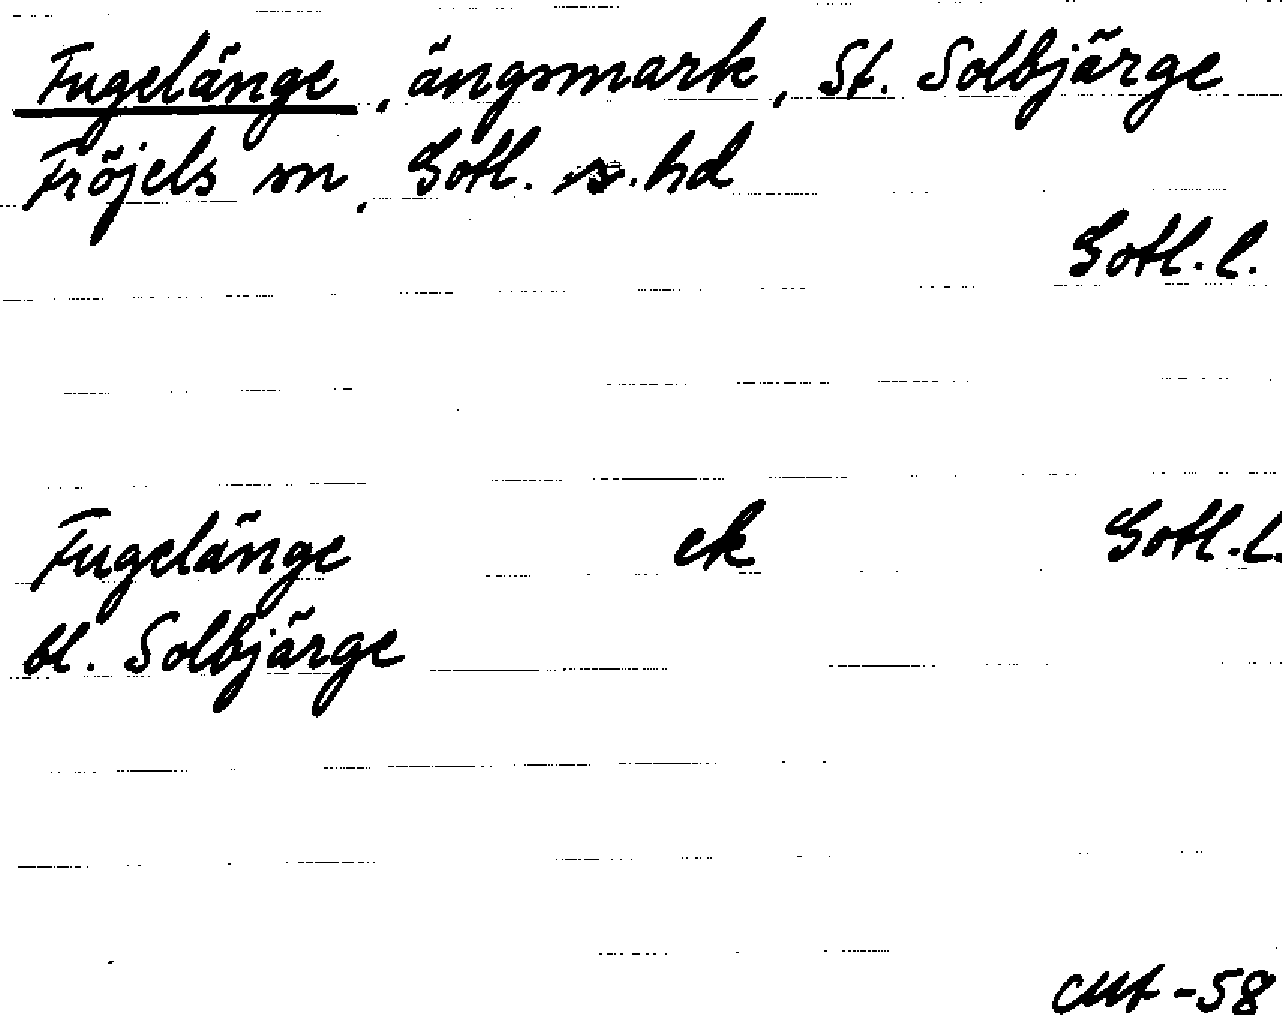 Fugelänge, ängsmark, St. Solbjärge
Fröjels sn, Gotl. s. hd
Gotl. l.
Fugelänge ek Gotl. L.
bl. Solbjärge
-58